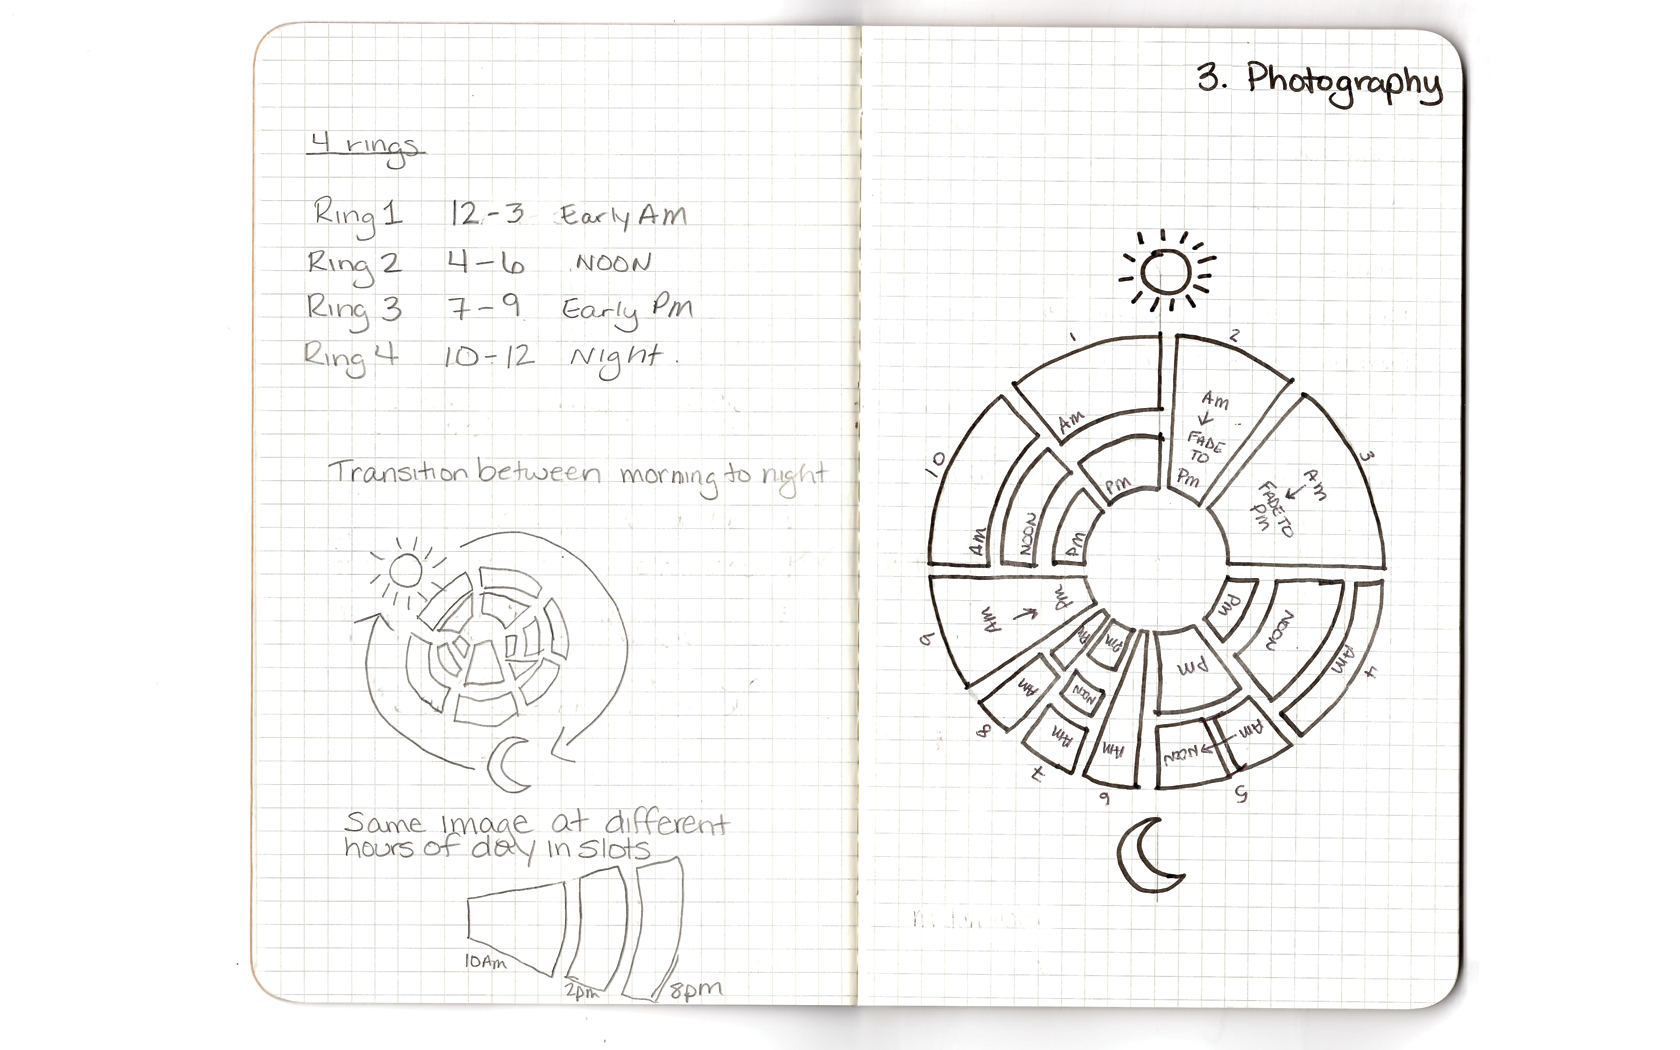 4 rings
Ring 1 12-3 Early AM
Ring 2 4-6 NOON
Ring 3 7-9 Early PM
Ring 4 10-12 Night.
Transition between morning to night
Same image at different
hours of day in slots
10AM
2pm
8pm
3. Photography
1
Am
Pm
2
Am
FADE
TO
Pm
3
Am
FADE TO
Pm
4
AM
NOON
Pm
5
AM
NOON
Pm
6
AM
7
AM
NOON
Pm
8
AM
9
AM
Pm
10
AM
NOON
Pm